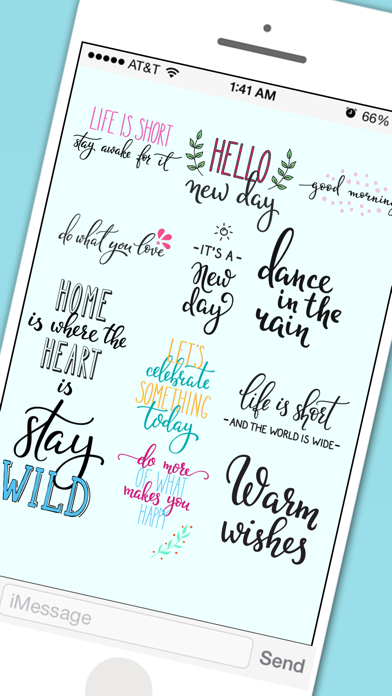 AT&T
1:41 AM
66%
LIFE IS SHORT
stay awake for it
HELLO
new day
good morning
do what you love
-IT'S A-
New
day
dance
in the
rain
HOME
is where the
HEART
is
LET'S
celebrate
SOMETHING
today
life is short
-AND THE WORLD IS WIDE-
stay
WILD
do more
OF WHAT
makes you
HAPPY
Warm
wishes
iMessage
Send